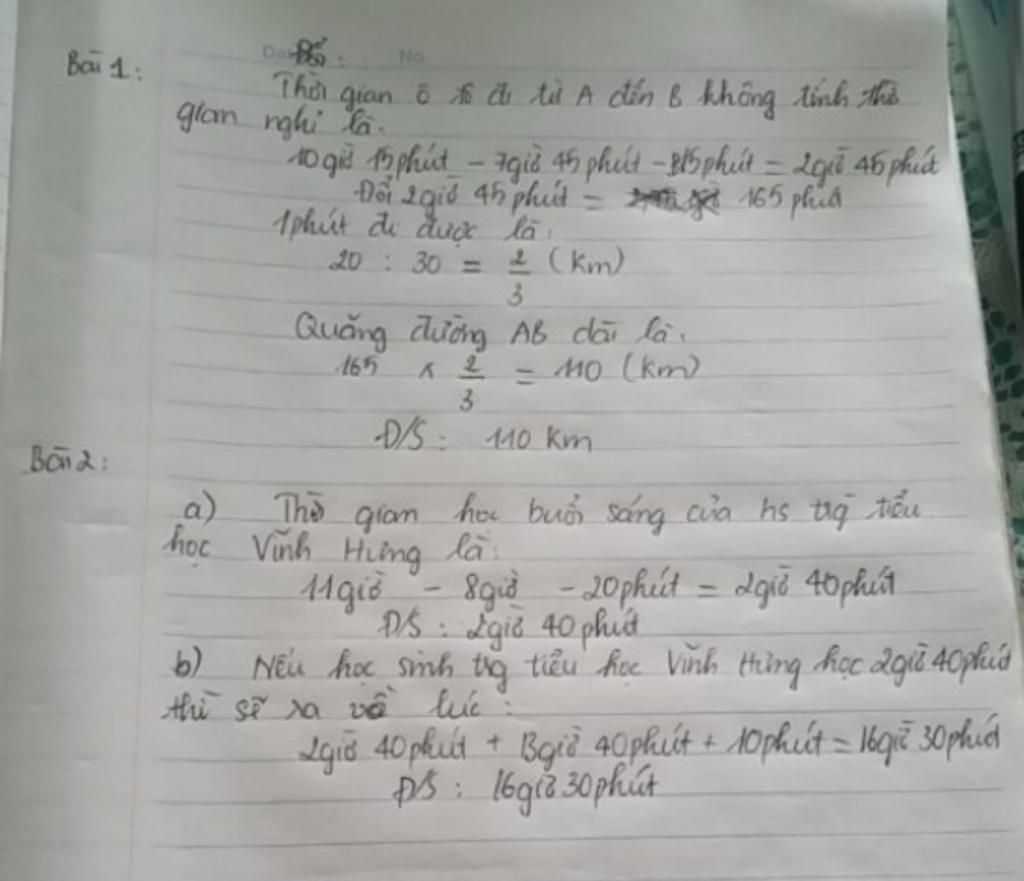 Bài 1:
Thời gian ô tô đi từ A đến B không tính thời
gian nghỉ là.
10giờ 15phút - 7giờ 45phút - 15phút = 2giờ 45phút
Đổi 2giờ 45phút = 165 phút
1phút đi được là:
20 : 30 = 2/3 (km)
Quãng đường AB dài là.
165 x 2/3 = 110 (km)
Đ/S: 110 km
Bài 2:
a) Thời gian học buổi sáng của hs trg tiểu
học Vĩnh Hưng là:
11giờ - 8giờ - 20phút = 2giờ 40phút
Đ/S: 2giờ 40phút
b) Nếu học sinh trg tiểu học Vĩnh Hưng học 2giờ 40phút
thì sẽ ra về lúc:
2giờ 40phút + 13giờ 40phút + 10phút = 16giờ 30phút
Đ/S: 16giờ 30phút